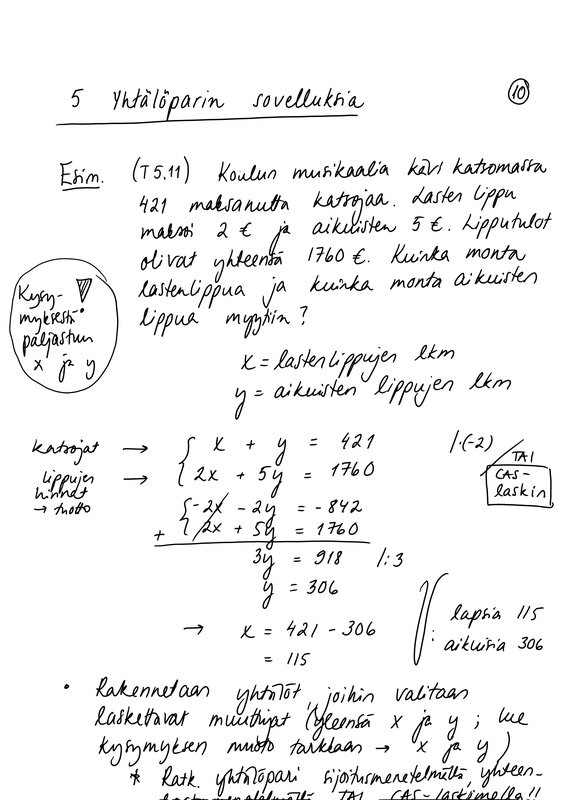 5 Yhtälöparin sovelluksia
10
Esim. (T5.11) Koulun musikaalia kävi katsomassa
421 maksanutta katsojaa. Lasten lippu
maksoi 2 € ja aikuisten 5 €. Lipputulot
olivat yhteensä 1760 €. Kuinka monta
lastenlippua ja kuinka monta aikuisten
lippua myytiin?
Kysy-
myksestä
paljastuu
x ja y
x = lastenlippujen lkm
y = aikuisten lippujen lkm
katsojat → x + y = 421 /·(-2)
lippujen hinnat → tuotto → 2x + 5y = 1760
TAI
CAS-
laskin
-2x - 2y = -842
+ 2x + 5y = 1760
3y = 918 /:3
y = 306
→ x = 421 - 306
= 115
: lapsia 115
aikuisia 306
• Rakennetaan yhtälöt, joihin valitaan
laskettavat muuttujat (yleensä x ja y ; lue
kysymyksen muoto tarkkaan → x ja y)
* Ratk. yhtälöpari sijoitusmenetelmällä, yhteen-
TAI CAS-laskimella!!